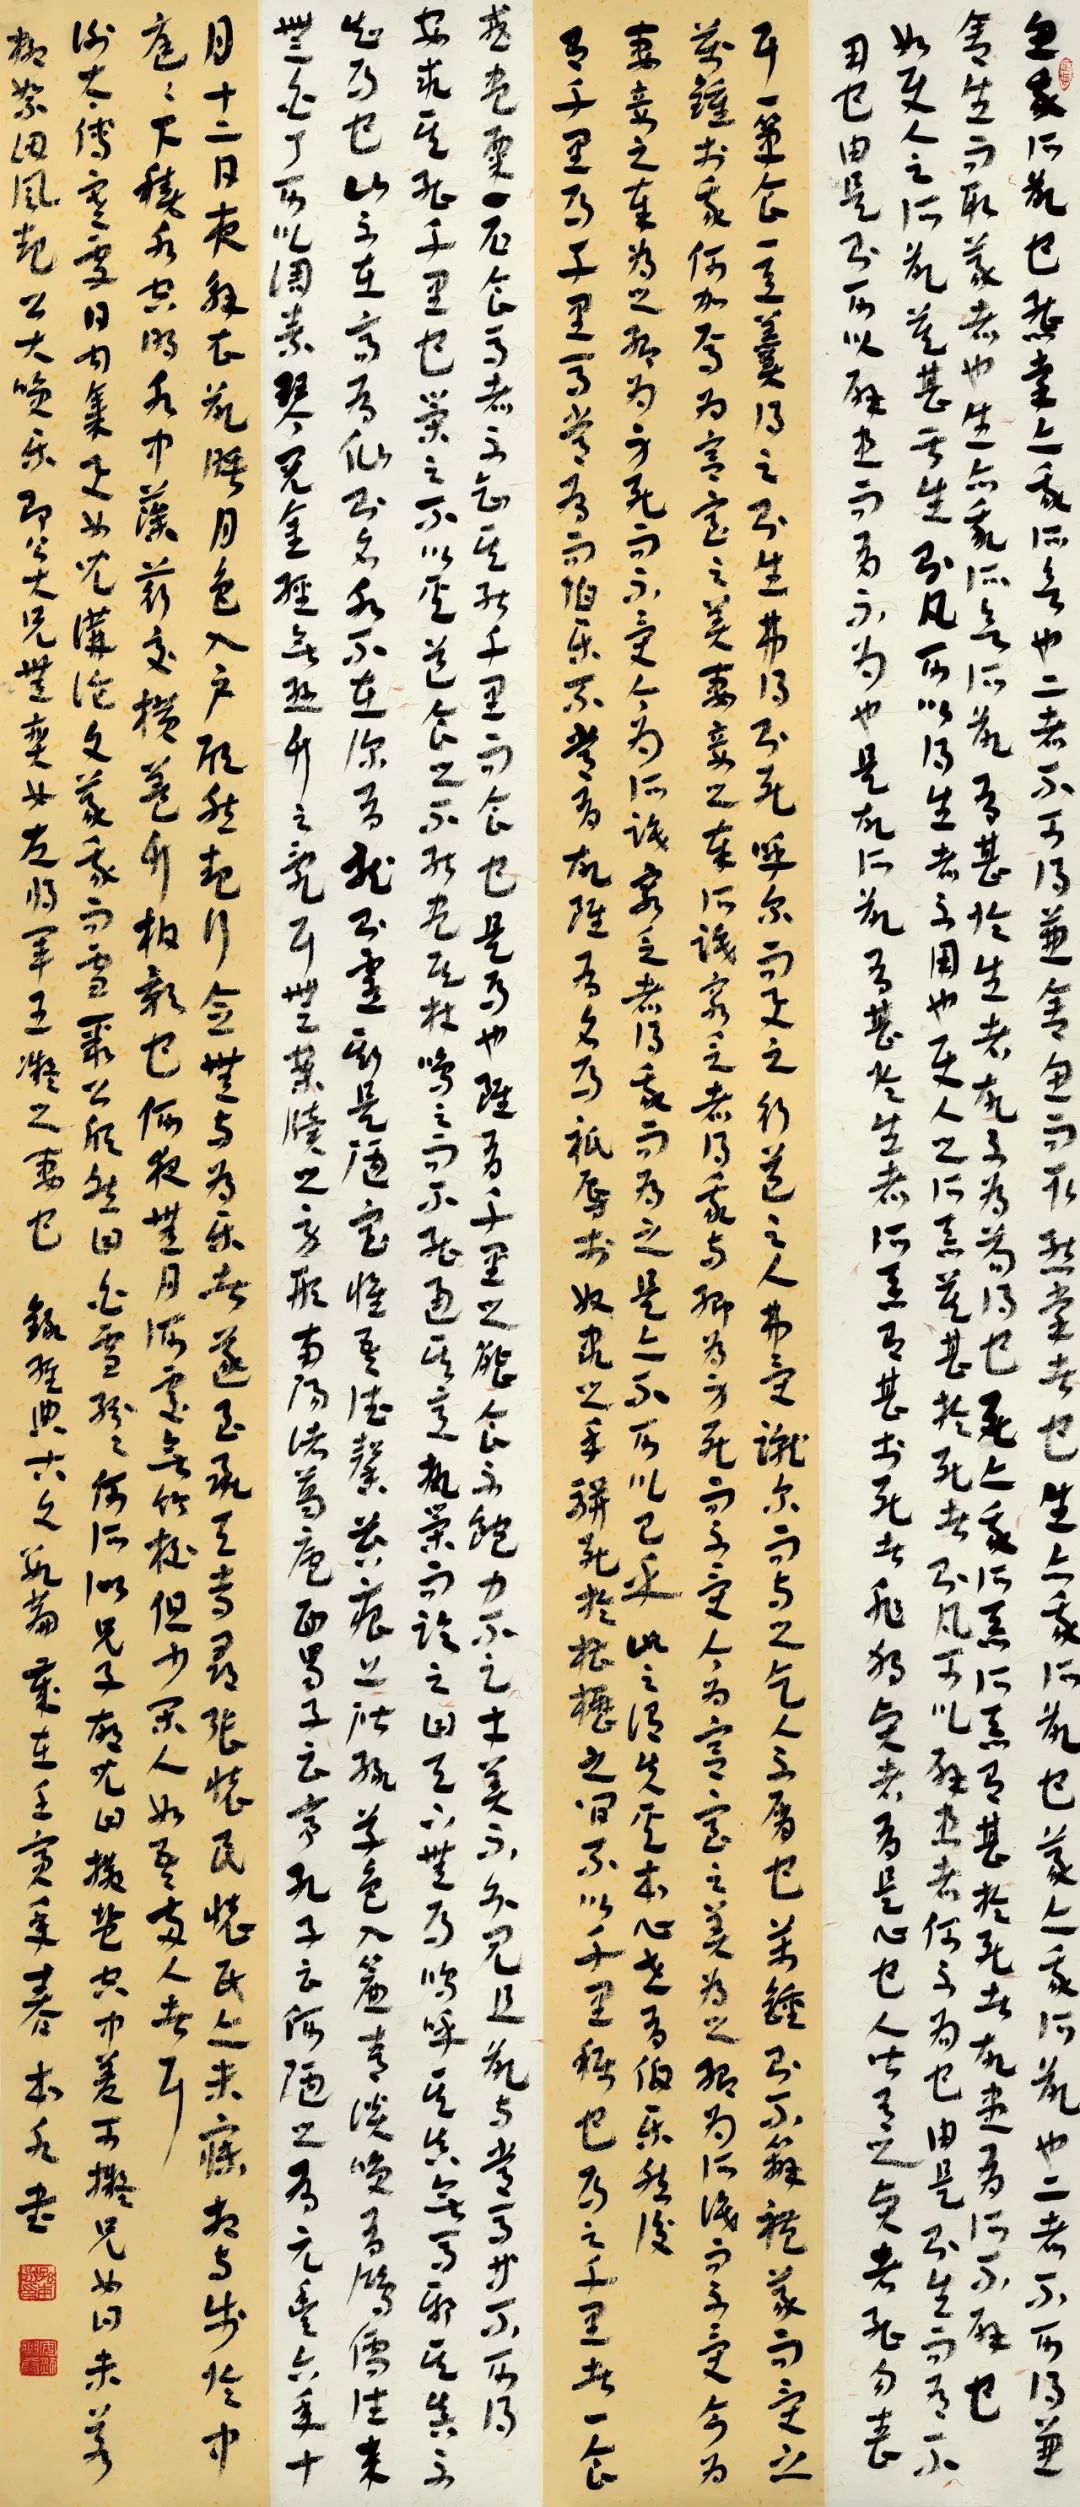 鱼我所欲也熊掌亦我所欲也二者不可得兼舍鱼而取熊掌者也生亦我所欲也義亦我所欲也二者不可得兼
舍生而取義者也生亦我所欲所欲有甚於生者故不為苟得也死亦我所惡所惡有甚於死者故患有所不辟也
如使人之所欲莫甚於生則凡可以得生者何不用也使人之所惡莫甚於死者則凡可以辟患者何不為也由是則生而有不
用也由是則可以辟患而有不為也是故所欲有甚於生者所惡有甚於死者非獨賢者有是心也人皆有之賢者能勿喪
耳一簞食一豆羹得之則生弗得則死呼爾而與之行道之人弗受蹴爾而與之乞人不屑也萬鍾則不辯禮義而受之
萬鍾於我何加焉為宮室之美妻妾之奉所識窮乏者得我與鄉為身死而不受今為宮室之美為之鄉為所識而不受今為
妻妾之奉為之鄉為身死而不受今為所識窮乏者得我而為之是亦不可以已乎此之謂失其本心世有伯樂然後
有千里馬千里馬常有而伯樂不常有故雖有名馬祗辱於奴隸之手駢死於槽櫪之間不以千里稱也馬之千里者一食
或盡粟一石食馬者不知其能千里而食也是馬也雖有千里之能食不飽力不足才美不外見且欲與常馬等不可得
安求其能千里也策之不以其道食之不能盡其材鳴之而不能通其意執策而臨之曰天下無馬嗚呼其真無馬邪其真不
知馬也山不在高有仙則名水不在深有龍則靈斯是陋室惟吾德馨苔痕上階綠草色入簾青談笑有鴻儒往來
無白丁可以調素琴閱金經無絲竹之亂耳無案牘之勞形南陽諸葛廬西蜀子雲亭孔子云何陋之有元豐六年十
月十二日夜解衣欲睡月色入戶欣然起行念無與為樂者遂至承天寺尋張懷民懷民亦未寢相與步於中
庭〻下積水空明水中藻荇交橫蓋竹柏影也何夜無月何處無竹柏但少閒人如吾兩人者耳
謝太傅寒雪日內集與兒女講論文義俄而雪驟公欣然曰白雪紛〻何所似兄子胡兒曰撒鹽空中差可擬兄女曰未若
柳絮因風起公大笑樂即公大兄無奕女左將軍王凝之妻也 錄經典古文數篇歲在壬寅年春 書